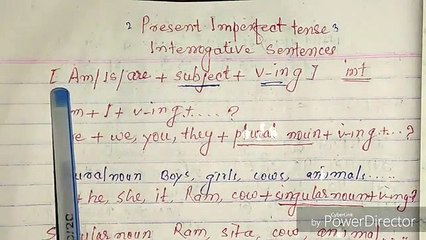 2 Present Imperfect tense 3
Interrogative Sentences
[ Am/Is/are + subject + v-ing ] int
m + I + v-ing + ....?
e + we, you, they + plural noun + v-ing + ...?
ural noun Boys, girls, cows, animals.....
he, she, it, Ram, cow + singular noun + v-ing.?
noun Ram, sita, cow,
by PowerDirector